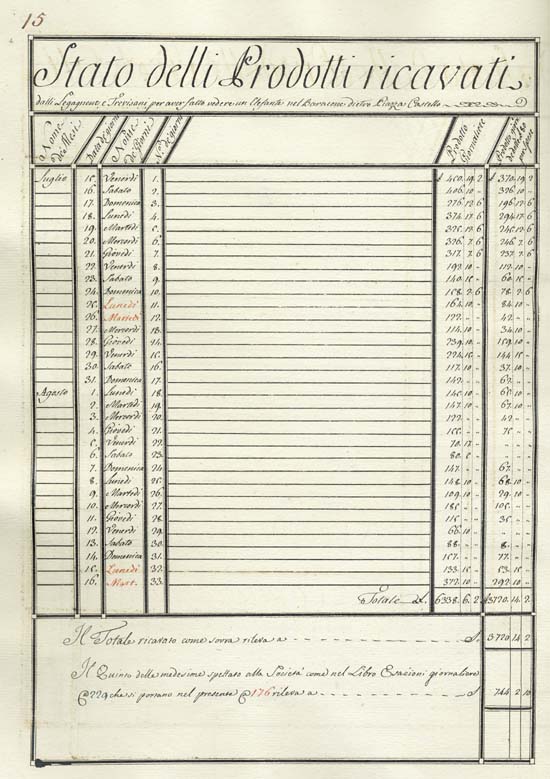 15
Stato delli Prodotti ricavati
dalli Legagneur, e Trevisani per aver fatto vedere un Elefante nel Baracone dietro Piazza Castello
Nome de Mesi Data de giorni Nome de Giorni N.º de giorni Prodotto Giornaliere Prodotto
Luglio 15. Venerdi 1. 450. 19. 2 370. 19. 2
16. Sabato 2. 406. 10 326. 10
17. Domenica 3. 276. 12. 6 196. 12. 6
18. Lunedi 4. 374. 17. 6 294. 17. 6
19. Martedi 5. 325. 12. 6 245. 12. 6
20. Mercordi 6. 326. 7. 6 246. 7. 6
21. Giovedi 7. 317. 7. 6 237. 7. 6
22. Venerdi 8. 192. 10 112. 10
23. Sabato 9. 140. 60.
24. Domenica 10. 158. 2. 6 78. 2. 6
25. Lunedi 11. 164. 10 84. 10
26. Martedi 12. 122. 42.
27. Mercordi 13. 114. 10 34. 10
28. Giovedi 14. 239. 10 159. 10
29. Venerdi 15. 224. 144.
30. Sabato 16. 117. 10 37. 10
31. Domenica 17. 142.
Agosto 1. Lunedi 18. 145. 10
2. Martedi 19. 147. 10 67.
3. Mercordi 20. 122. 42.
4. Giovedi 21. 155. 75.
5. Venerdi 22. 70. 17
6. Sabato 23. 80.
7. Domenica 24. 147. 67.
8. Lunedi 25. 148. 10 68. 10
9. Martedi 26. 109. 10 29. 10
10. Mercordi 27. 185. 105.
11. Giovedi 28. 115. 35.
12. Venerdi 29. 66. 10
13. Sabato 30. 88. 8.
14. Domenica 31. 157. 77.
15. Lunedi 32. 133. 53.
16. Mart. 33. 372. 10 292. 10
Totale 6338. 6. 2 3720. 14. 2
Il Totale ricavato come sovra rileva a 3720 14 2
Il Quinto delle medesime spettato alla Società come nel Libro Esazioni giornaliere
229 che si portano nel presente 176 rileva a 744 2 10